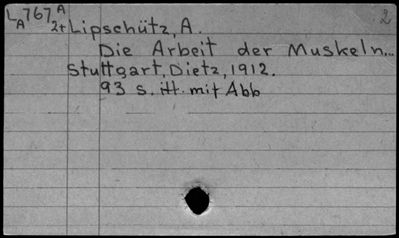 LA767A 2
2+ Lipschütz, A.
Die Arbeit der Muskeln...
Stuttgart, Dietz, 1912.
93 s. ill. mit Abb